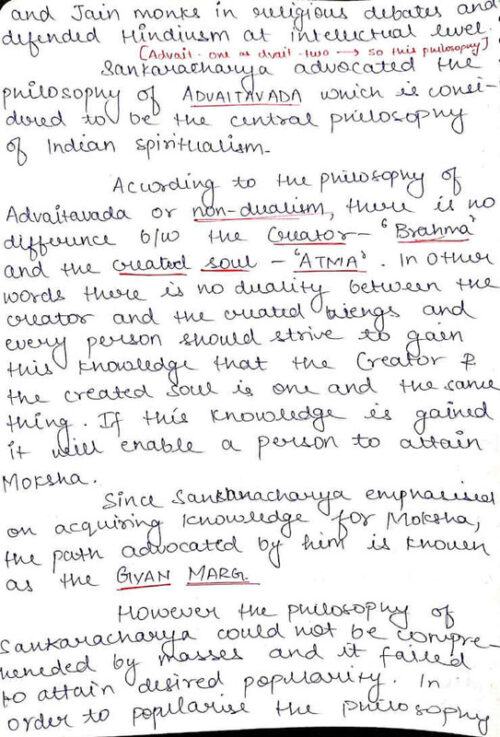 and Jain monks in religious debates and
defended Hinduism at intelectual level.
[Advait - one as dvait - two → so this philosophy]
Sankaracharya advocated the
philosophy of ADVAITAVADA which is consi-
dered to be the central philosophy
of Indian spiritualism.
According to the philosophy of
Advaitavada or non-dualism, there is no
difference b/w the Creator - 'Brahma'
and the created soul - 'ATMA'. In other
words there is no duality between the
creator and the created biengs and
every person should strive to gain
this knowledge that the Creator &
the created soul is one and the same
thing. If this knowledge is gained
it will enable a person to attain
Moksha.
Since Sankanacharya emphasised
on acquiring knowledge for Moksha,
the path advocated by him is known
as the GYAN MARG.
However the philosophy of
Sankaracharya could not be compre-
heneded by masses and it failed
to attain desired popularity. In
order to popularise the philosophy